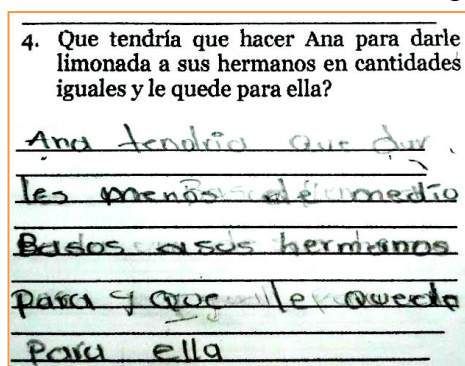 4. Que tendría que hacer Ana para darle
limonada a sus hermanos en cantidades
iguales y le quede para ella?
Ana tendria que dar
les menos de medio
Basos asus hermanos
para q que le quede
para ella